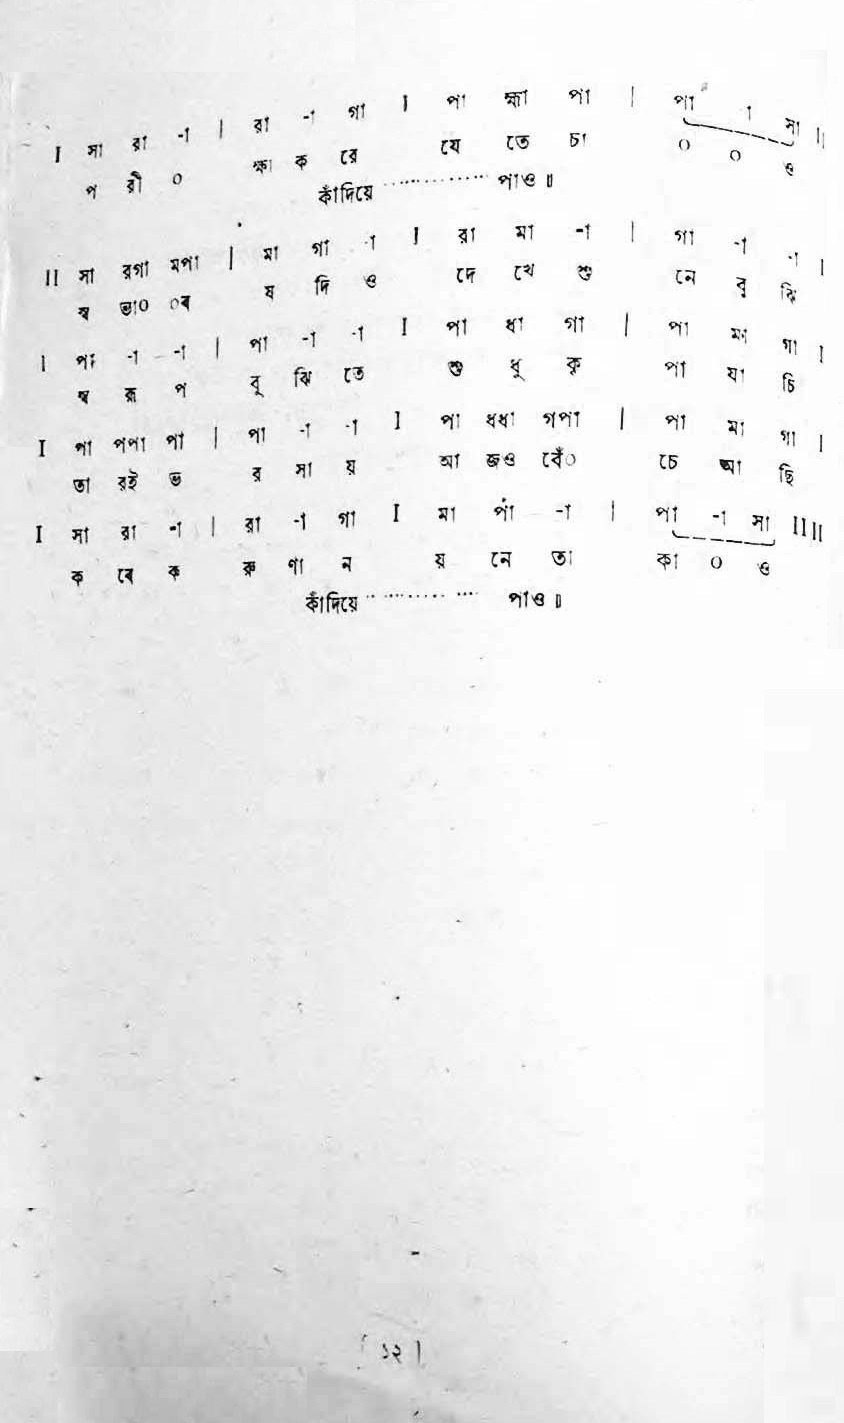 I সা রা -া | রা -া গা I পা হ্মা পা | পা -া সা II
প রী ০ ক্ষা ক রে যে তে চা ০ ০ ও
কাঁদিয়ে ............... পাও॥
II সা রগা মপা | মা গা -া I রা মা -া | গা -া -া I
স্ব ভা০ ০ব য দি ও দে খে শু নে বু ঝি
I পা -া -া | পা -া -া I পা ধা গা | পা মা গা I
স্ব রূ প বু ঝি তে শু ধু কৃ পা যা চি
I পা পপা পা | পা -া -া I পা ধধা গপা | পা মা গা I
তা রই ভ র সা য় আ জও বেঁ০ চে আ ছি
I সা রা -া | রা -া গা I মা পা -া | পা -া সা IIII
ক রে ক রু ণা ন য় নে তা কা ০ ও
কাঁদিয়ে ............... পাও॥
[ ১২ ]